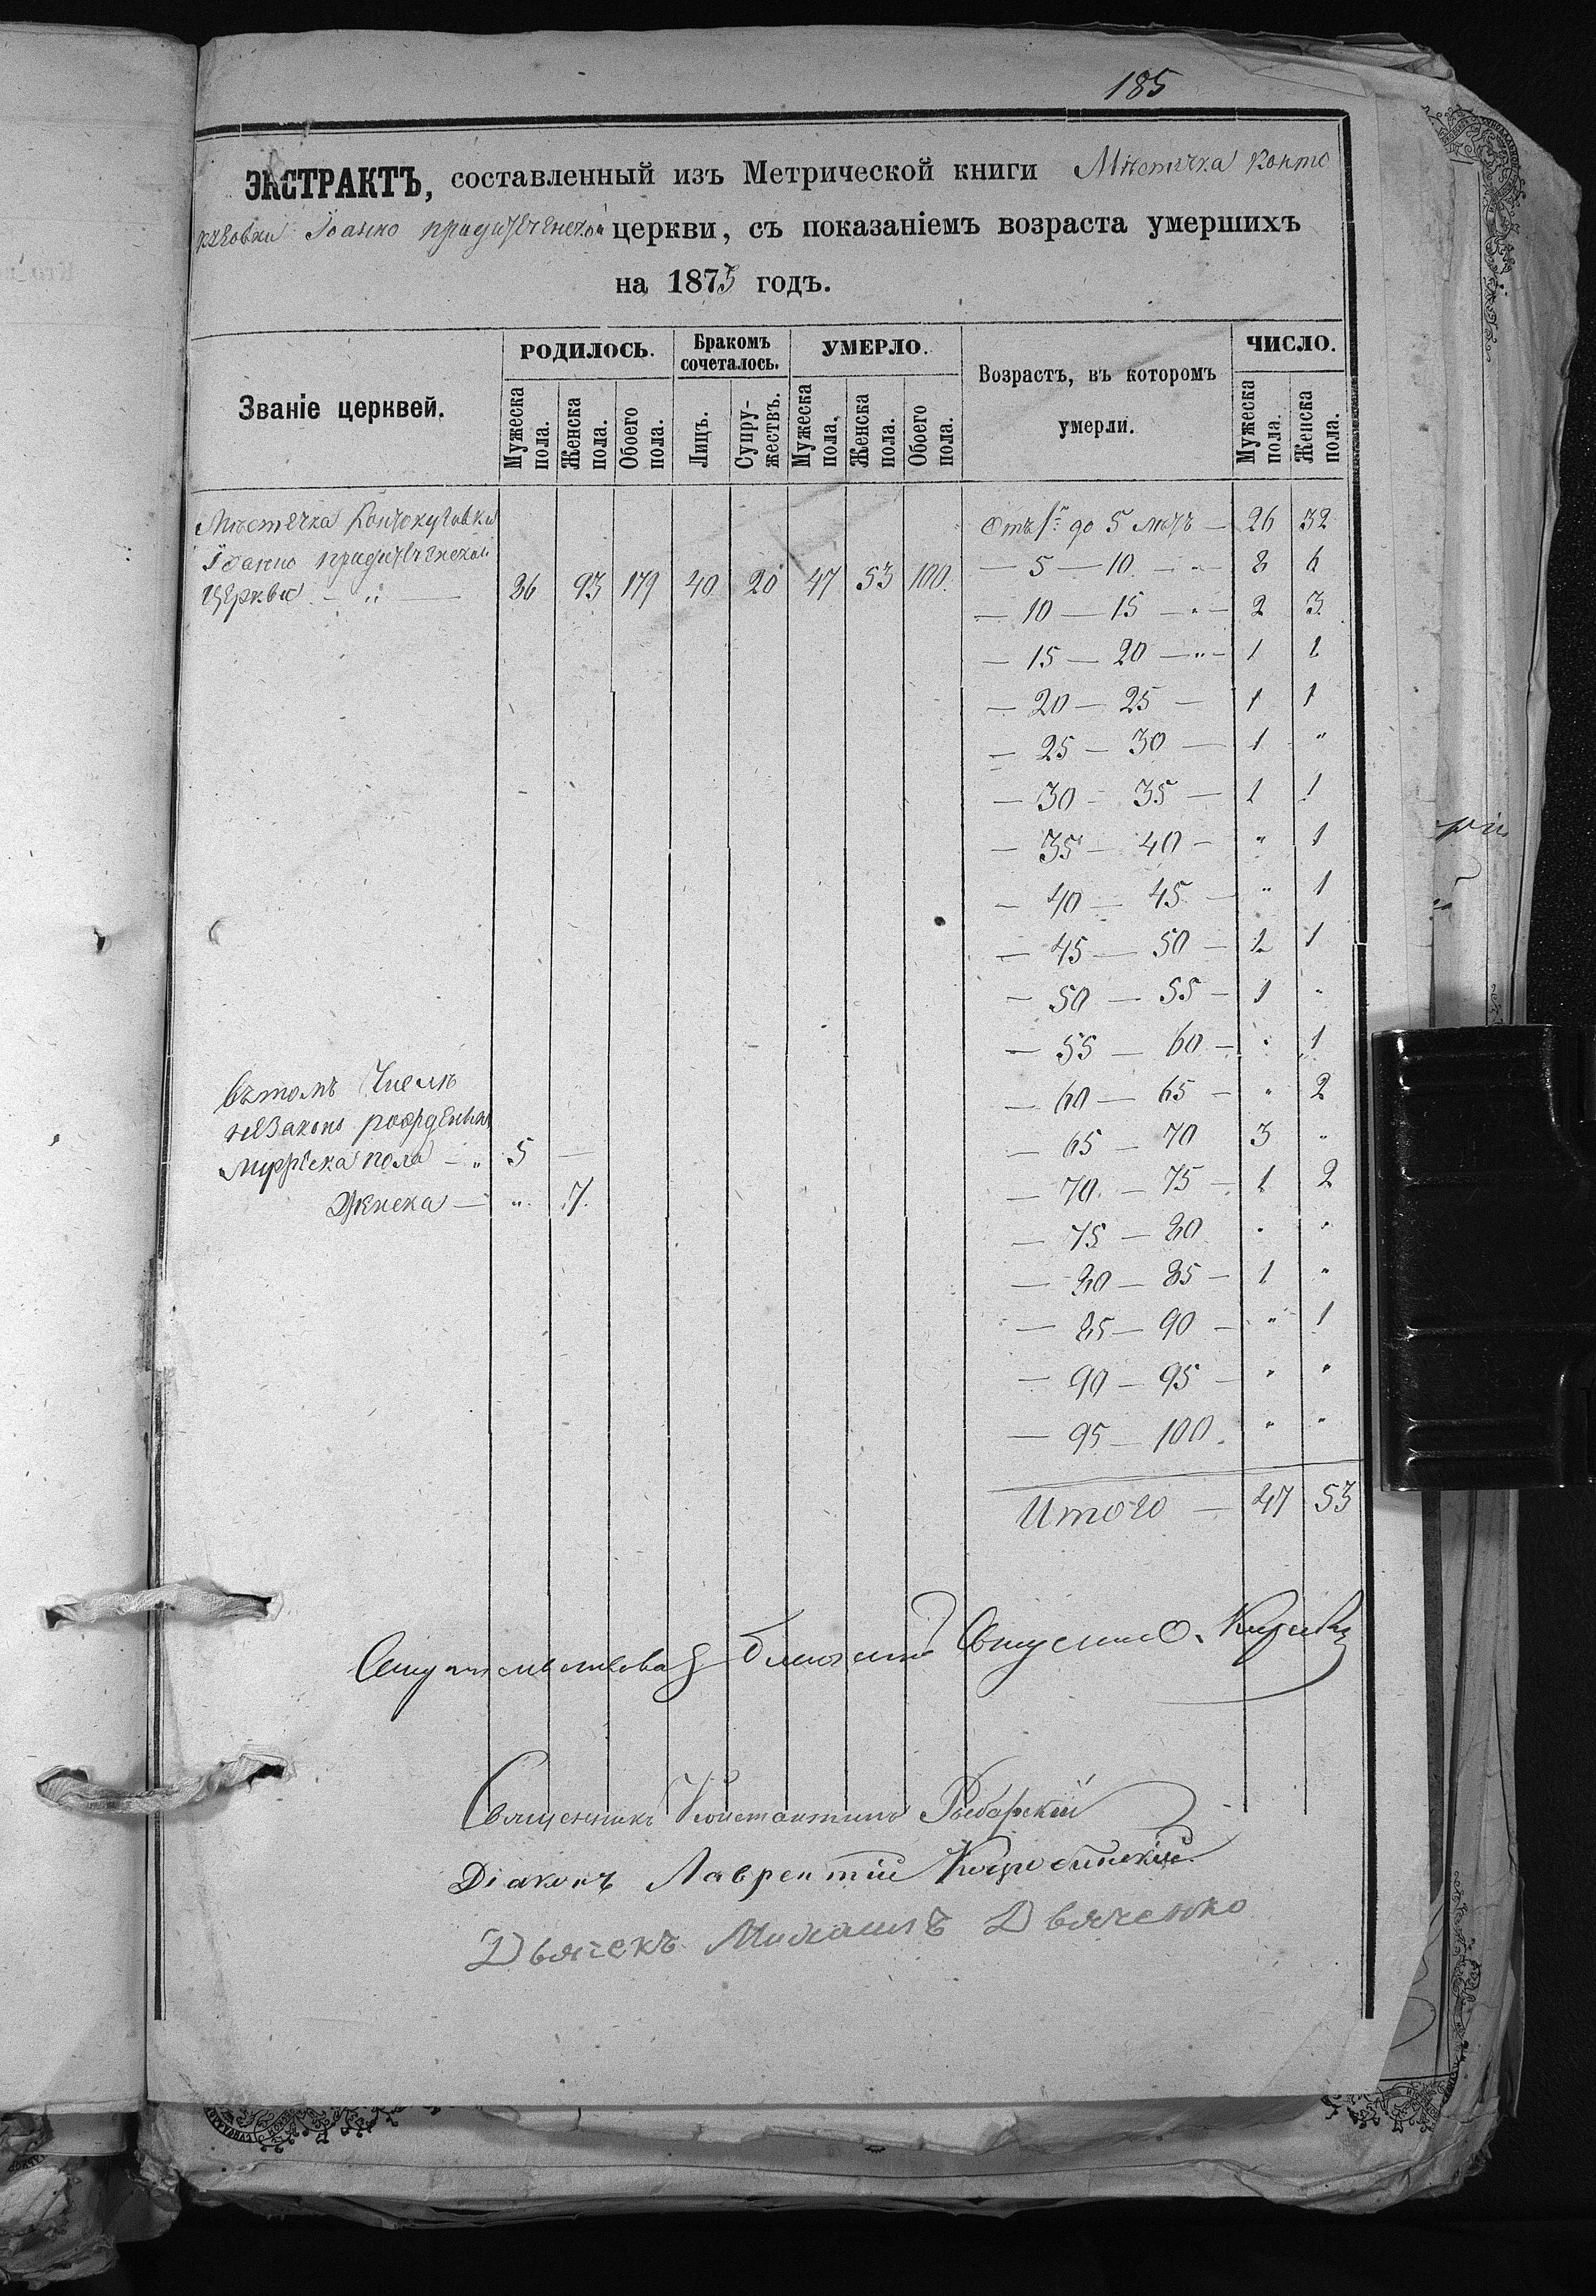 185
ЭКСТРАКТЪ, составленный изъ Метрической книги Мѣстечка Конто
кузовки Іоанно предтеченской церкви, съ показаніемъ возраста умершихъ
на 1875 годъ.
Званіе церквей.
РОДИЛОСЬ.
Бракомъ сочеталось.
УМЕРЛО.
Возрастъ, въ которомъ умерли.
ЧИСЛО.
Мужеска пола.
Женска пола.
Обоего пола.
Лицъ.
Супру-жествъ.
Мужеска пола.
Женска пола.
Обоего пола.
Мужеска пола.
Женска пола.
Мѣстечка
Іоанно предтеченской
Церкви — " — 86 93 179 40 20 47 53 100.
Отъ 1го до 5 лѣтъ — 26 32
— 5 — 10 — " — 8 6
— 10 — 15 — " — 2 3
— 15 — 20 — " — 1 1
— 20 — 25 — 1 1
— 25 — 30 — 1 "
— 30 — 35 — 1 1
— 35 — 40 — " 1
— 40 — 45 — " 1
— 45 — 50 — 1 1
— 50 — 55 — 1 "
— 55 — 60 — " 1
— 60 — 65 — " 2
— 65 — 70 3 "
— 70 — 75 — 1 2
— 75 — 80 " "
— 80 — 85 — 1 "
— 85 — 90 — " 1
— 90 — 95 — " "
— 95 — 100. " "
Итого — 47 53
Въ томъ Числѣ
незаконо рожденныхъ
мужеска пола — " 5 —
Женска — " 7.
Священникъ Константинъ Рыбарскій
Діаконъ Лаврентій
Дьячекъ Михаилъ Дьяченко